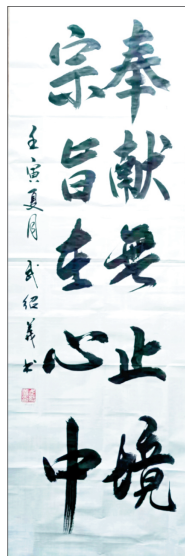 奉献無止境
宗旨在心中
壬寅夏月 武绍義书